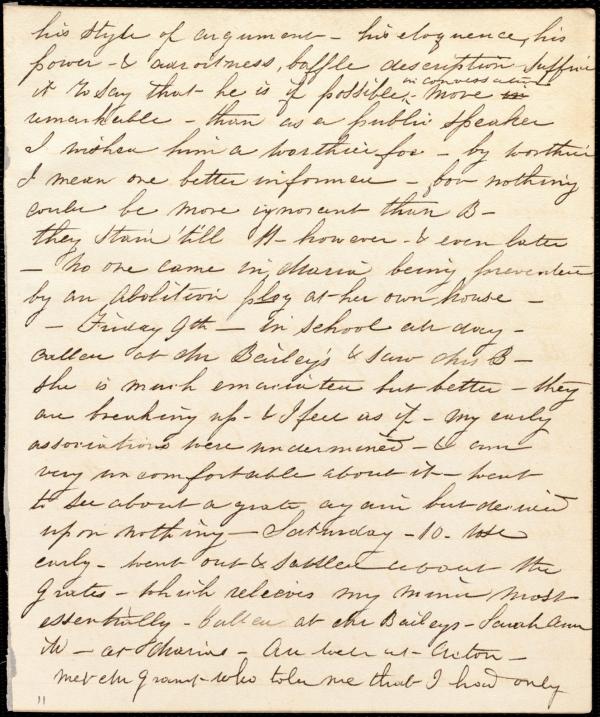 his style of argument - his eloquence, his
power - & adroitness, baffle description - Suffice
it to say that he is if possible, in conversation more
remarkable - than as a public speaker
I wished him a worthier foe - by worthier
I mean one better informed - for nothing
could be more ignorant than B -
they staid 'till 11 - however - & even later
- No one came in, Maria being prevented
by an Abolition at her own house -
- Friday 9th - in school all day -
called at Mr Bailey's & saw Mrs B -
she is much emaciated but better - they
are breaking up - & I feel as if - my early
associations were undermined - & am
very uncomfortable about it - went
to see about a grate again but decided
upon nothing - Saturday - 10. rose
early - went out & settled about the
Grates - which relieves my mind most
essentially - Called at Mr Baileys - Sarah Ann
- at Marias - All well at Acton -
met Mr Grant who told me that I had only
11